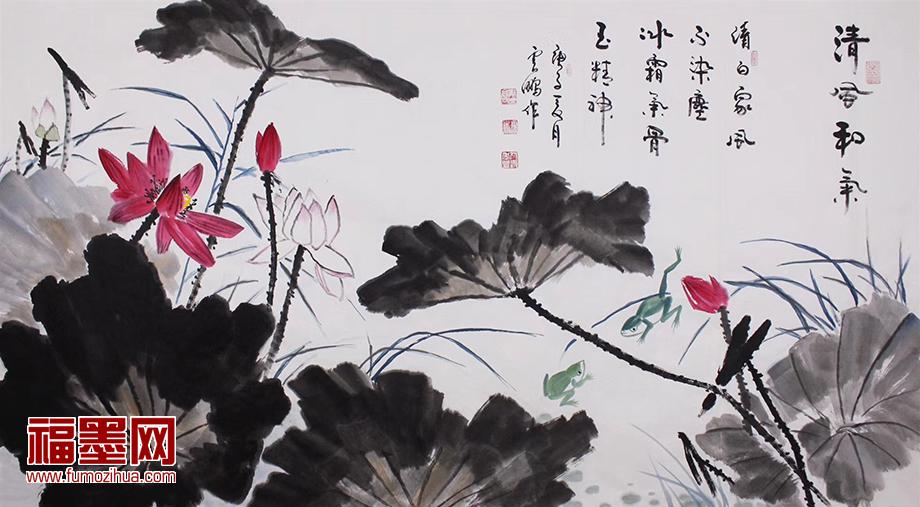 清風和氣
清白家風
不染塵
冰霜氣骨
玉精神
庚子夏月
雲鵬作
福墨网
www.fumozihua.com